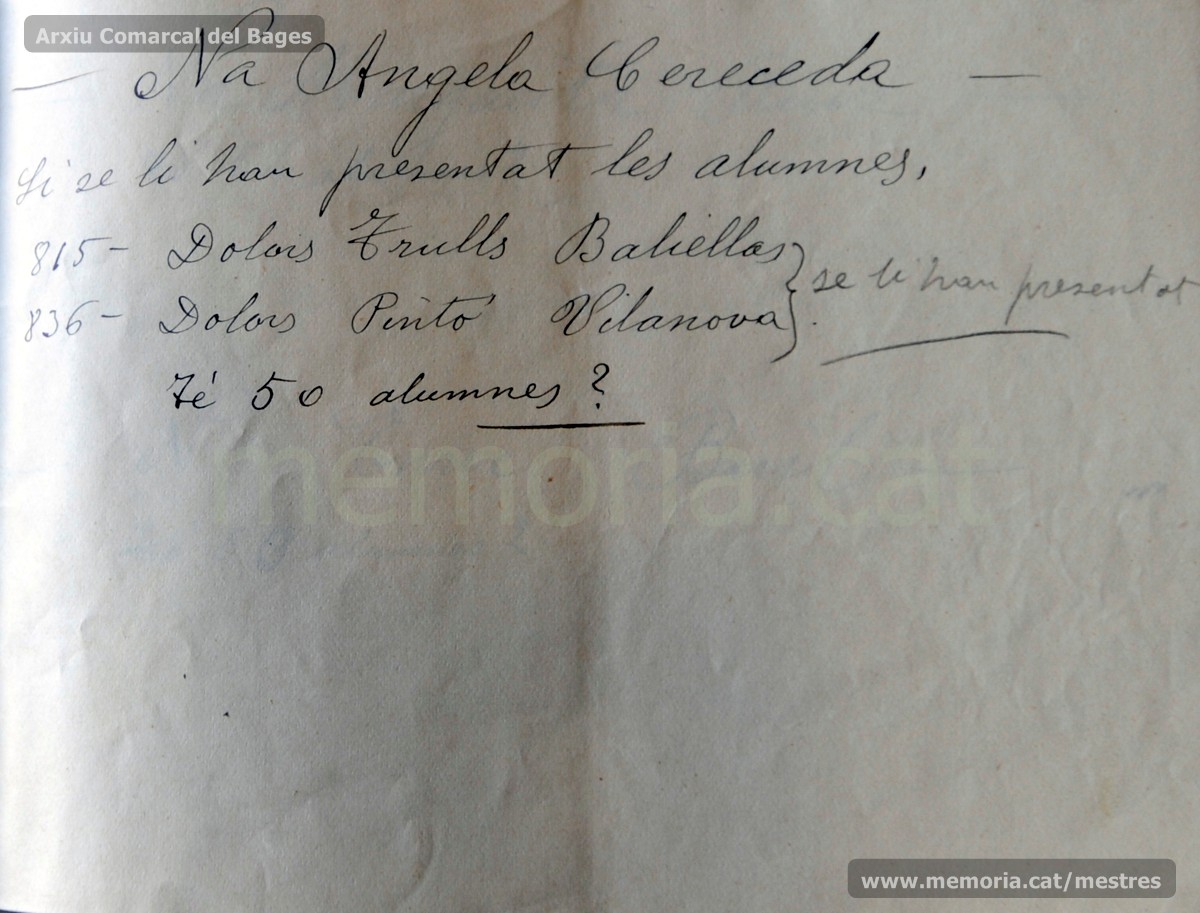 Arxiu Comarcal del Bages
— Na Angela Cereceda —
Si se li han presentat les alumnes,
815 - Dolors Trulls Babiellas
836 - Dolors Pintó Vilanova
} se li han presentat
Té 50 alumnes?
memoria.cat
www.memoria.cat/mestres